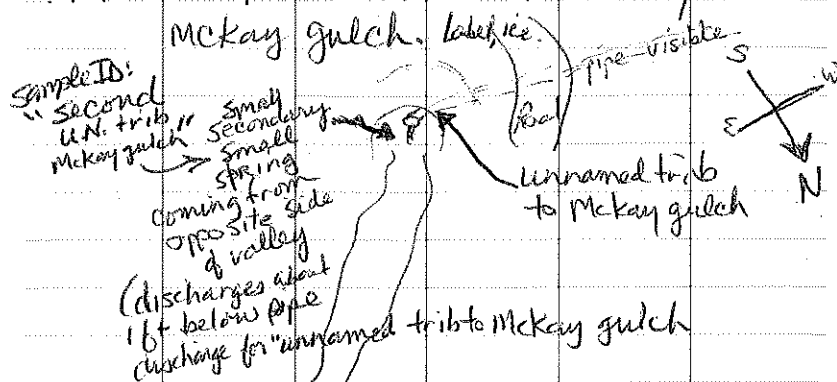 McKay gulch. Label, ice.
pipe visible
Sample ID:
"Second
U.N. trib
McKay gulch"
small
secondary
small
spring
coming from
opposite side
of valley
(discharges about
1 ft below pipe
discharge for "unnamed trib to McKay gulch
Road
unnamed trib
to McKay gulch
S
W
E
N